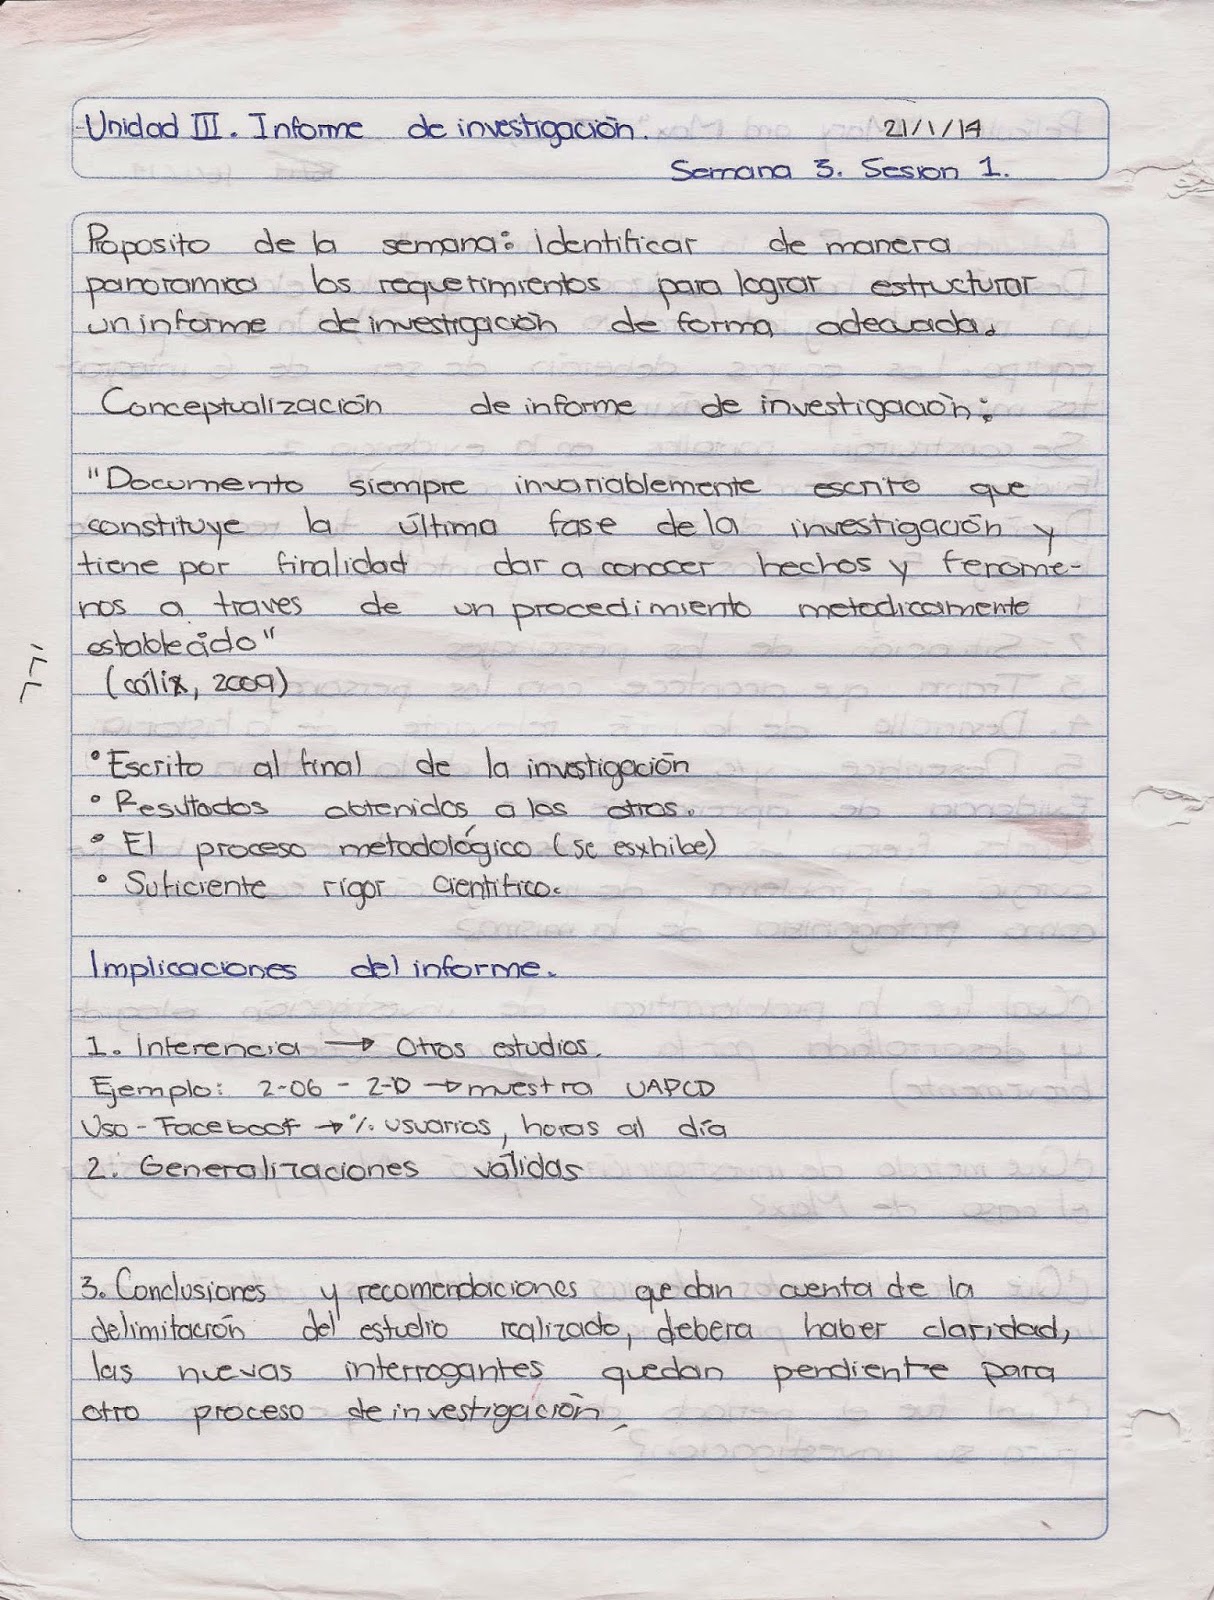 Unidad III. Informe de investigación. 21/1/14
Semana 3. Sesion 1.
Proposito de la semana: identificar de manera
panoramica los requerimientos para lograr estructurar
un informe de investigación de forma adecuada.
Conceptualización de informe de investigación:
"Documento siempre invariablemente escrito que
constituye la última fase de la investigación y
tiene por finalidad dar a conocer hechos y fenome-
nos a traves de un procedimiento metodicamente
establecido"
(cálix, 2009)
• Escrito al final de la investigación
• Resultados obtenidos a los otros.
• El proceso metodológico (se esxhibe)
• Suficiente rigor cientifico.
Implicaciones del informe.
1. Inferencia → Otros estudios.
Ejemplo: 2-06 - 2-D → muestra UAPCD
Uso - Facebook → % usuarios, horas al día
2. Generalizaciones válidas
3. Conclusiones y recomendaciones que dan cuenta de la
delimitación del estudio realizado, debera haber claridad,
las nuevas interrogantes quedan pendiente para
otro proceso de investigación